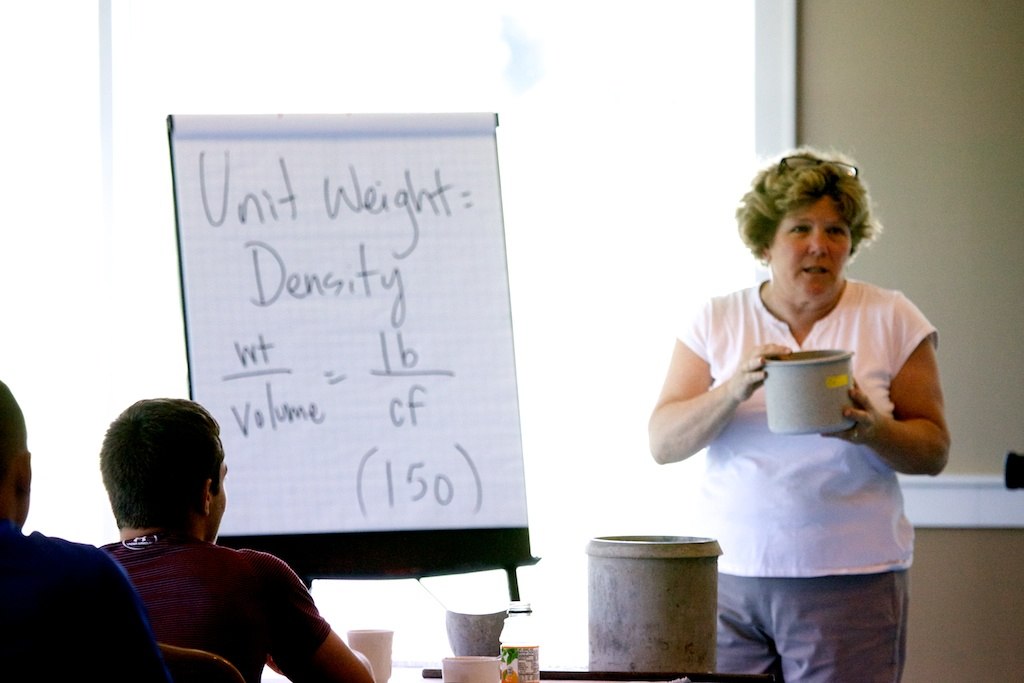 Unit Weight =
Density
wt / volume = lb / cf
(150)